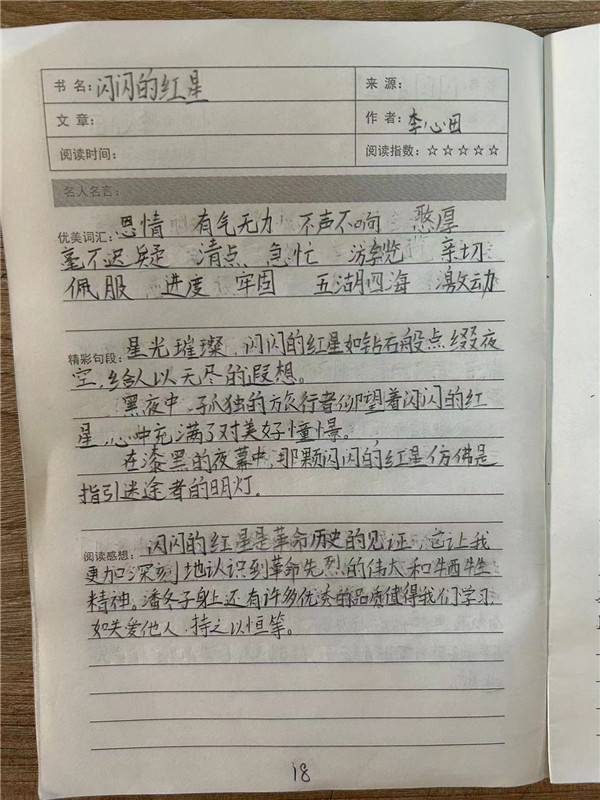 书 名: 闪闪的红星
来 源:
文 章:
作 者: 李心田
阅读时间:
阅读指数: ☆☆☆☆☆
名人名言:
优美词汇: 恩情 有气无力 不声不响 憨厚
毫不迟疑 清点 急忙 游览 亲切
佩服 进度 牢固 五湖四海 激动
精彩句段: 星光璀璨,闪闪的红星如钻石般点缀夜
空,给人以无尽的遐想。
黑夜中,孤独的旅行者仰望着闪闪的红
星,心中充满了对美好憧憬。
在漆黑的夜幕中,那颗闪闪的红星仿佛是
指引迷途者的明灯.
阅读感想: 闪闪的红星是革命历史的见证,它让我
更加深刻地认识到革命先烈的伟大和牺牲
精神。潘冬子身上还有许多优秀的品质值得我们学习,
如关爱他人,持之以恒等。
18